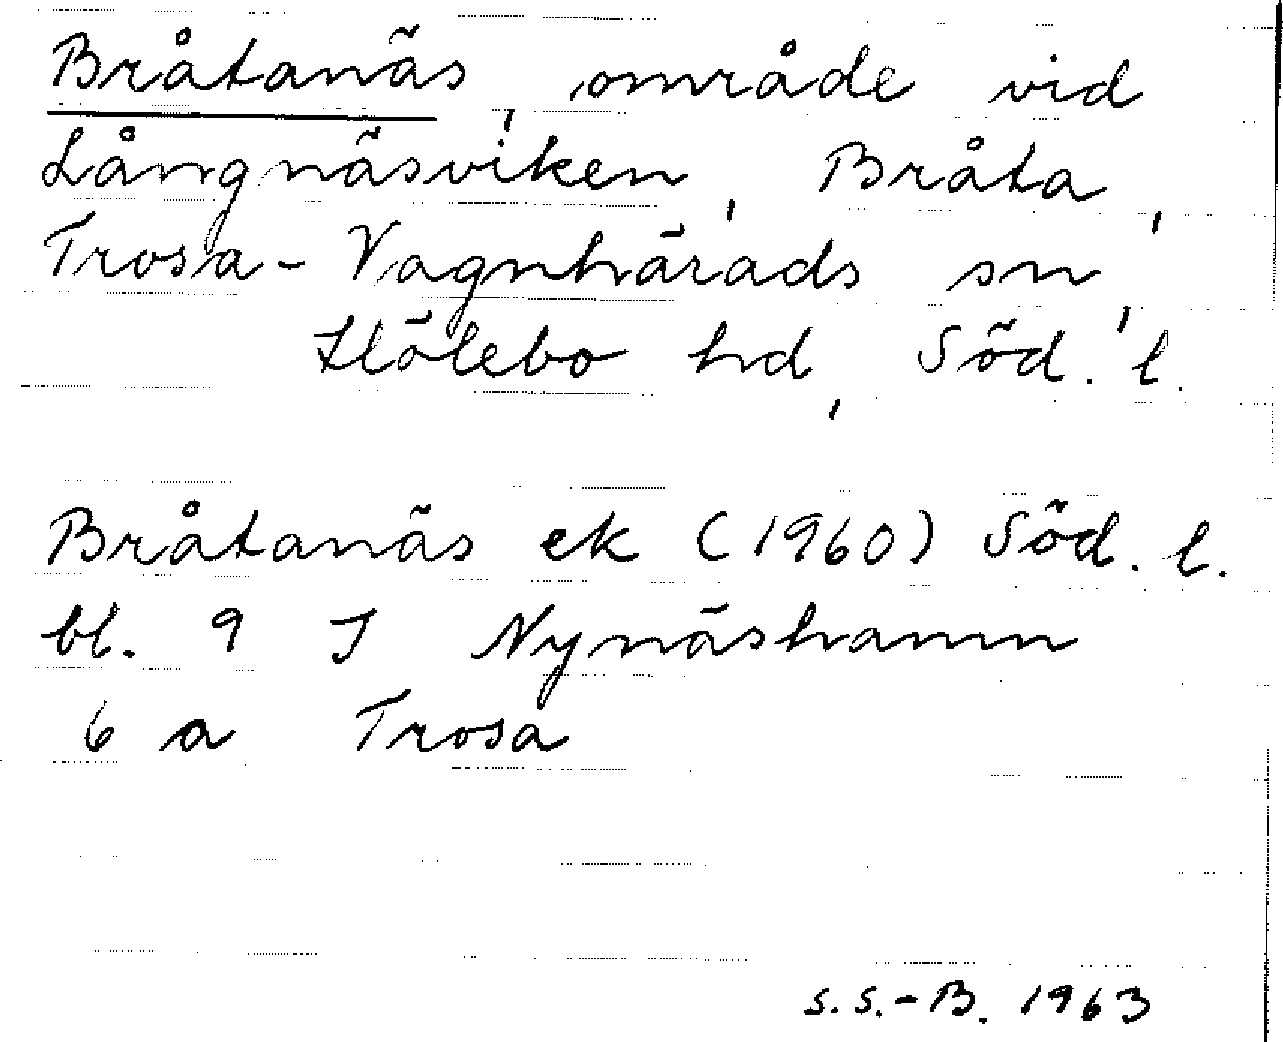 Bråtanäs, område vid
Långnäsviken, Bråta,
Trosa-Vagnhärads sn,
Hölebo hd, Söd. l.
Bråtanäs ek (1960) Söd. l.
bl. 9 I Nynäshamn
6 a Trosa
S.S.-B. 1963